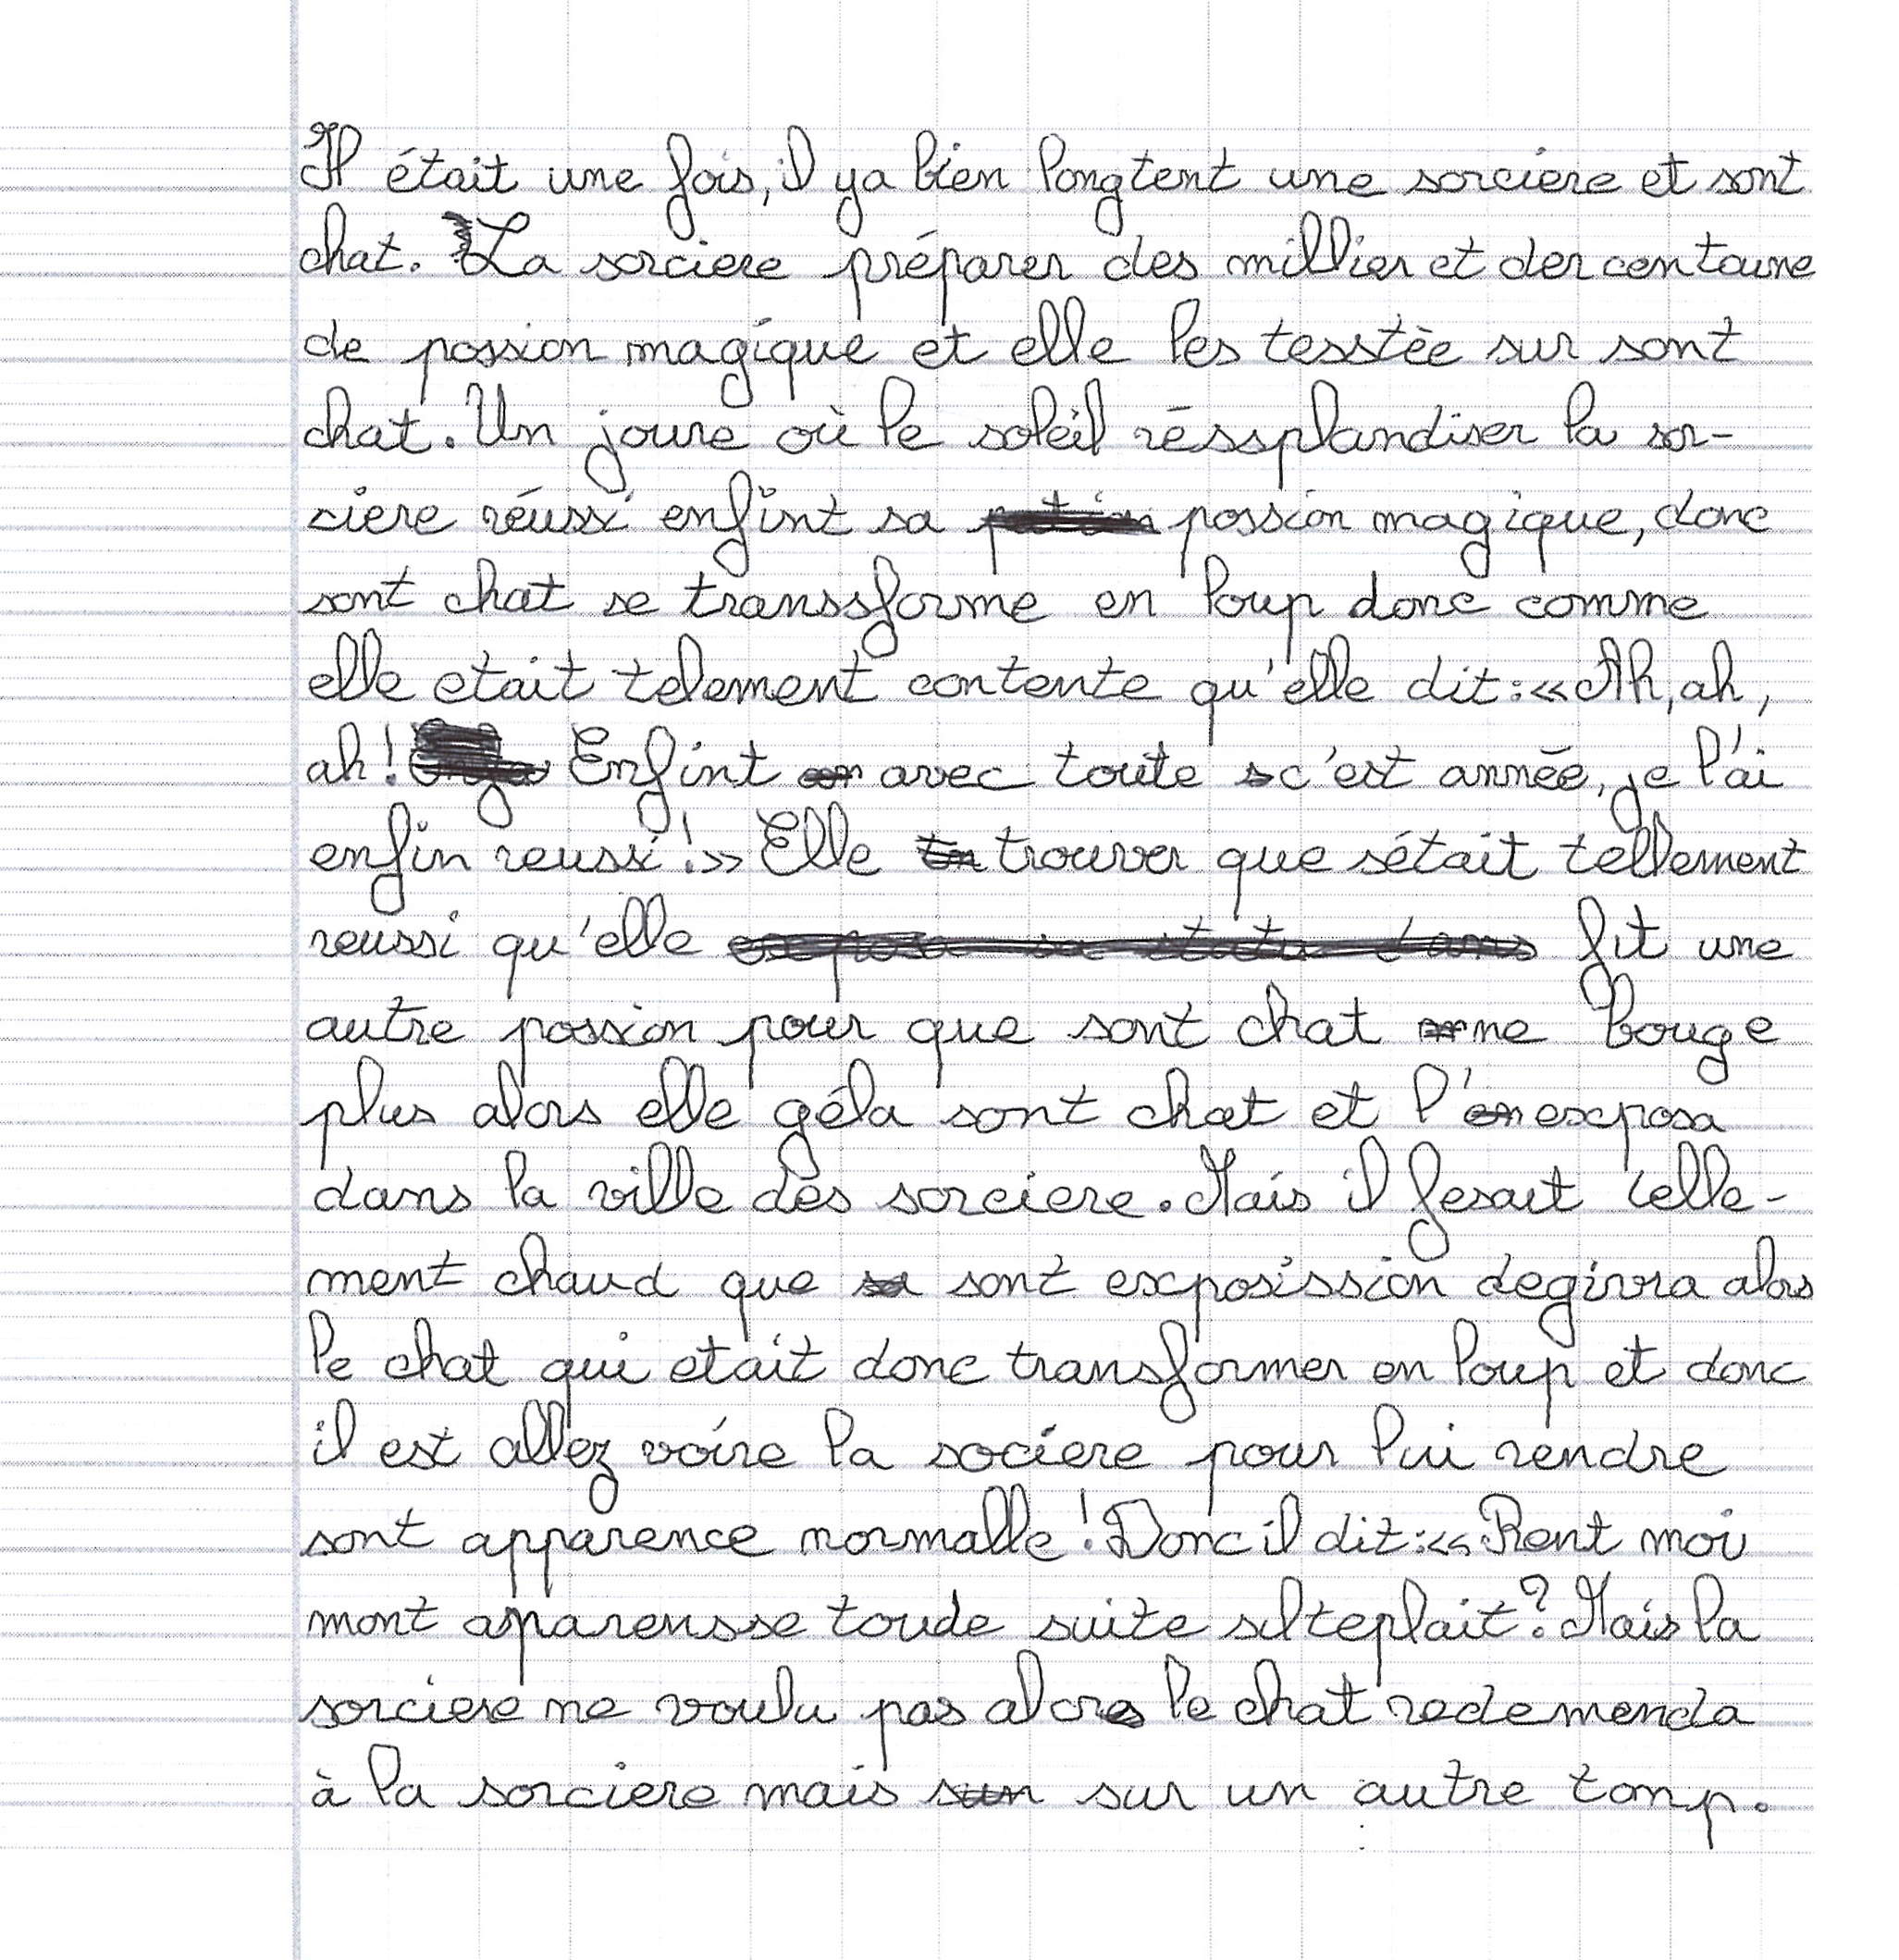 Il était une fois, il ya bien longtent une sorciere et sont
chat. La sorciere préparer des millier et der centaine
de possion magique et elle les tesstèe sur sont
chat. Un joure où le soleil réssplandiser la sor-
ciere réussi enfint sa possion magique, donc
sont chat se transsforme en loup donc comme
elle etait telement contente qu'elle dit : « Ah, ah,
ah ! Enfint avec toute c'est année, je l'ai
enfin reussi ! » Elle trouver que sétait tellement
reussi qu'elle fit une
autre possion pour que sont chat ne bouge
plus alors elle géla sont chat et l'exposa
dans la ville des sorciere. Mais il fesait telle-
ment chaud que sont exposission degivra alors
le chat qui etait donc transformer en loup et donc
il est allez voire la sociere pour lui rendre
sont apparence normalle ! Donc il dit : « Rent moi
mont aparensse toude suite silteplait ? Mais la
sorciere ne voulu pas alors le chat redemenda
à la sorciere mais sur un autre tonp.